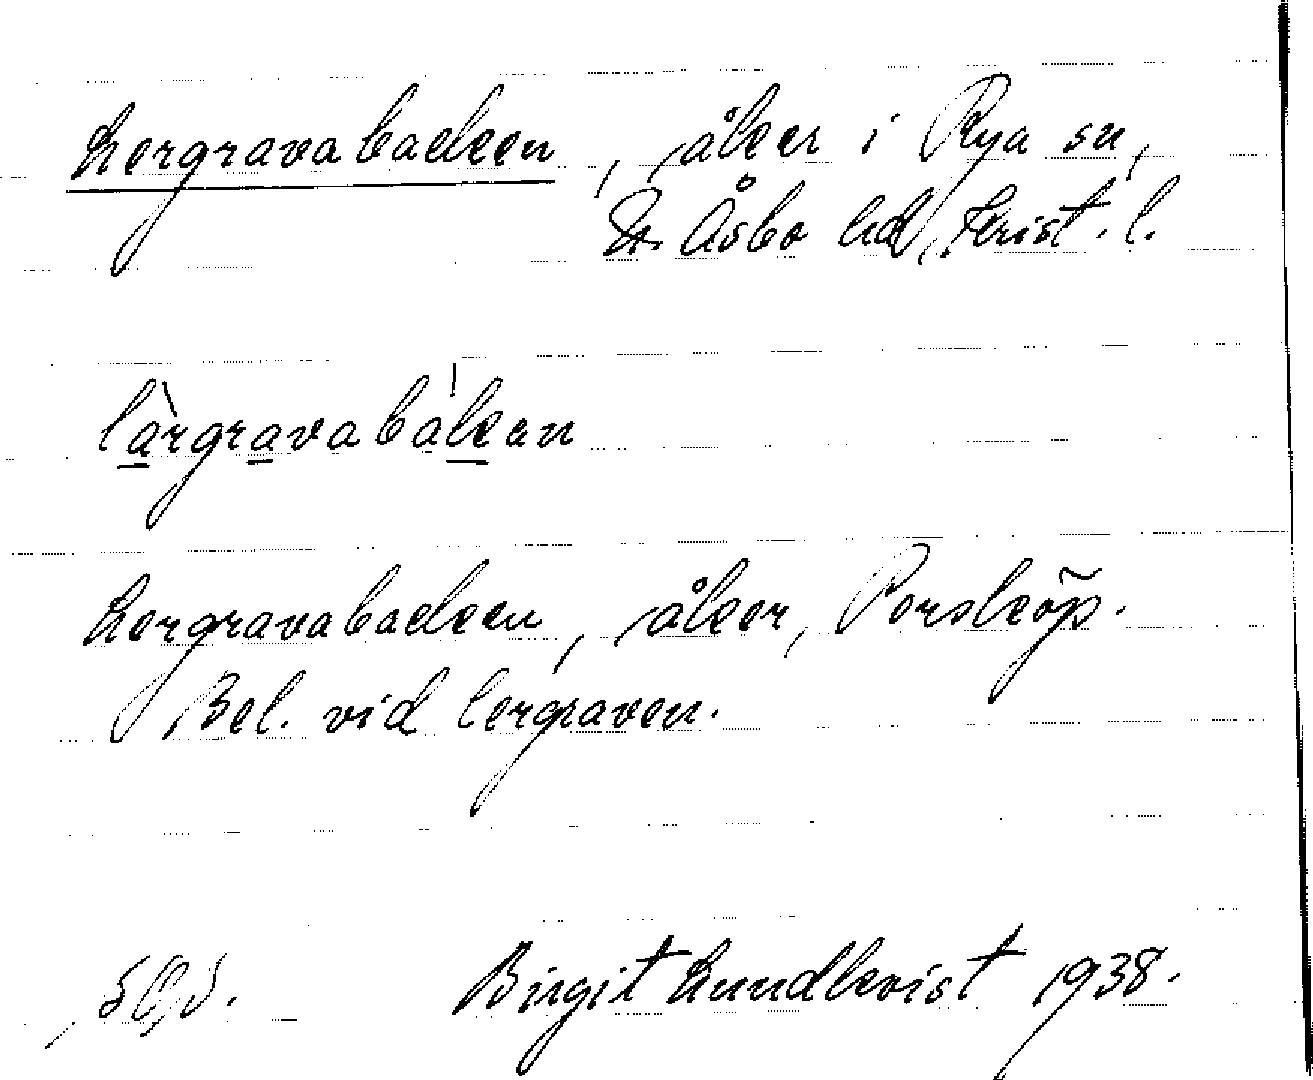 Lergravabacken, åker i Rya sn,
N. Åsbo hd, Krist. l.
làrgravabàkan
Lergravabacken, åker, Porsköp.
Bel. vid lergraven.
Birgit Lundkvist 1938.